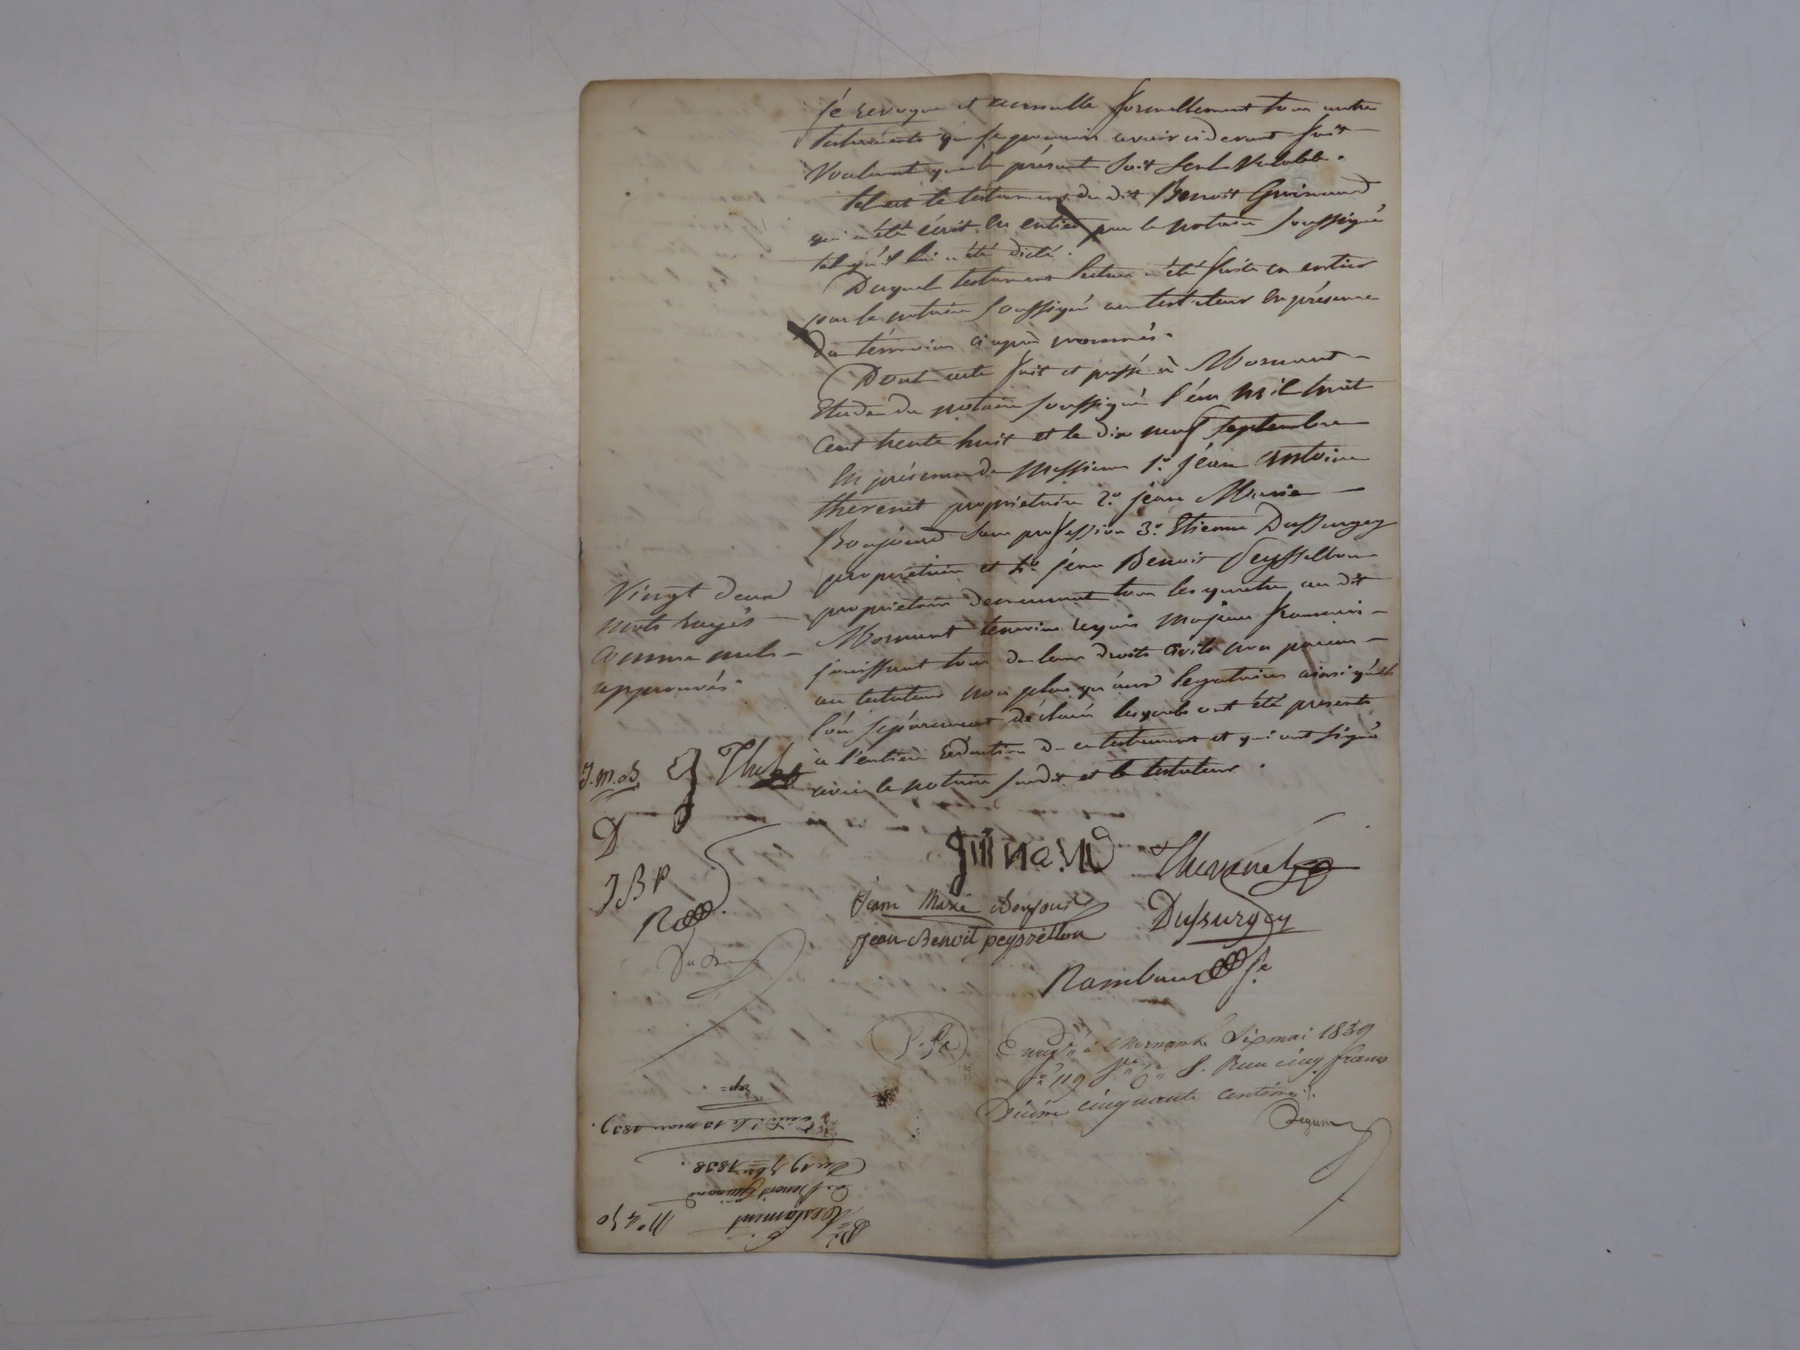 Je revoque et annulle formellement tous autre
testaments que je pourrais avoir cidevant fait
Voulant que le présent soit seul valable.
tel est le testament du dit Benoit Guinand
qui a été écrit en entier par le notaire soussigné
tel qu'il lui a été dicté.
Duquel testament lecture a été faite en entier
par le notaire soussigné au testateur en présence
de témoins ci après nommés.
Dont acte fait et passé à Mornant
Etude du notaire soussigné l'an mil huit
cent trente huit et le dix neuf septembre
En présence de Messieurs 1.º Jean Antoine
thevenet propriétaire 2.º Jean Marie
Bonjour sans profession 3.º Etienne Dussurgey
propriétaire et 4.º Jean Benoit Peyssellon
propriétaire demeurant tous les quatre au dit
Mornant temoins requis majeurs francais
jouissant tous de leurs droits civils non parens
au testateur non plus qu'aux legataires ainsi qu'ils
l'on séparement déclaré lesquels ont été présents
à l'entière rédaction de ce testament et qui ont signé
avec le notaire susdit et le testateur.
Vingt deux
mots rayés
comme nuls
approuvés.
J.M.B.
D
JBP
guinand
Thevenet
Jean Marie Bonjour
Dussurgey
jean Benoit peyssellon
Enreg.é à Mornant le Six mai 1839
f.º 119 R.º c. 6. Reçu cinq francs
Décime cinquante centimes.
N.º 450
Testament
de Benoit Guinand
Du 19 7bre 1838.
Exp.